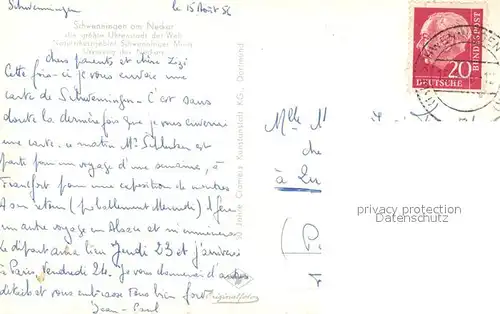 Schwenningen le 15 Août 56
Schwenningen am Neckar
die größte Uhrenstadt der Welt
Naturschutzgebiet Schwenninger Moos
Ursprung des Neckars
Chers parents et chère Zizi
Cette fois-ci je vous envoie une
carte de Schwenningen. C'est sans
doute la dernière fois que je vous enverrai
une carte. Ce matin Mr Schlenker est
parti pour un voyage d'une semaine, à
Francfort pour une exposition de montres
A son retour (probablement Mercredi) il fera
un autre voyage en Alsace et m'emmènera
Le départ aura lieu Jeudi 23 et j'arriverai
à Paris, Vendredi 24. Je vous donnerai d'autres
détails et vous embrasse tous bien fort
Jean-Paul
50 Jahre Cramers Kunstanstalt KG., Dortmund
Originalfoto
DEUTSCHE
BUNDESPOST
20
Mlle M
che
à
(P
privacy protection
Datenschutz